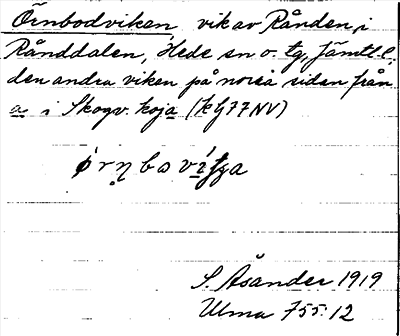 Örnbodviken, vik av Rånden, i
Rånddalen, Hede sn o. tg, Jämtl. l.
den andra viken på norra sidan från
a i Skogv. koja (kbl 77 NV)
S. Åsander 1919
Ulma 755:12